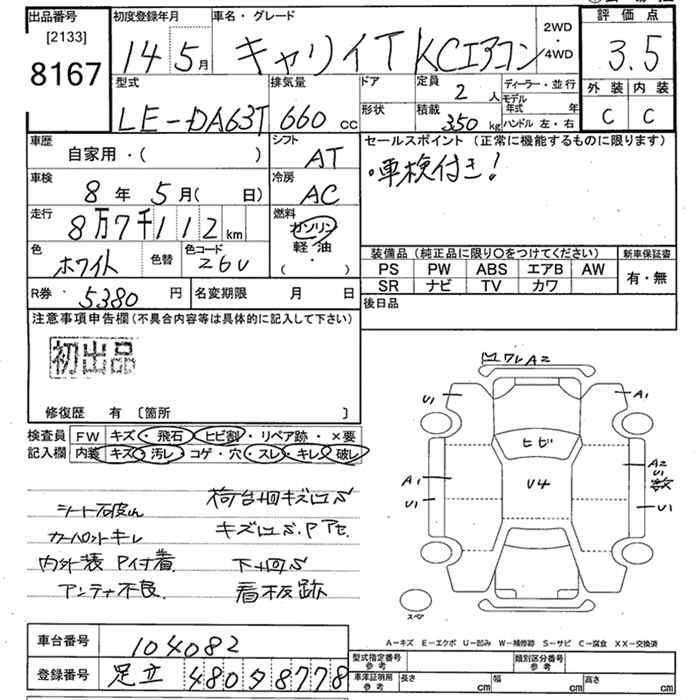 出品番号
[2133]
8167
初度登録年月
14 5月
車名・グレード
キャリイT KCエアコン
2WD
・
4WD
評価点
3.5
外装 内装
C C
型式
LE-DA63T
排気量
660 cc
ドア
形状
定員
2 人
積載
350 kg
ディーラー・並行
モデル年式 年
ハンドル 左・右
車歴
自家用・( )
シフト
AT
セールスポイント (正常に機能するものに限ります)
・車検付き!
車検
8年 5月( 日)
冷房
AC
走行
8万7千112km
燃料
ガソリン
軽油
・
( )
色
ホワイト
色替
色コード
26U
装備品 (純正品に限り○をつけてください)
PS PW ABS エアB AW
SR ナビ TV カワ
新車保証書
有・無
R券 5380円
名変期限 月 日
後日品
注意事項申告欄(不具合内容等は具体的に記入して下さい)
初出品
修復歴 有 [箇所 ]
検査員記入欄
FW キズ・飛石・ヒビ割・リペア跡・×要
内装 キズ・汚レ・コゲ・穴・スレ・キレ・破レ
荷台廻キズ凹
キズ凹
カーペットキレ
内外装 P付着
下廻
アンテナ不良
看板跡
ワレA2
U1
A1
ヒビ
U4
A1
U1
A2
U1
数
U1
スペア
A-キズ E-エクボ U-凹み W-補修跡 S-サビ C-腐食 XX-交換済
車台番号
104082
登録番号
足立 480 8778
型式指定番号
参考
類別区分番号
参考
車洋証明用
参考
長さ cm
幅 cm
高さ cm